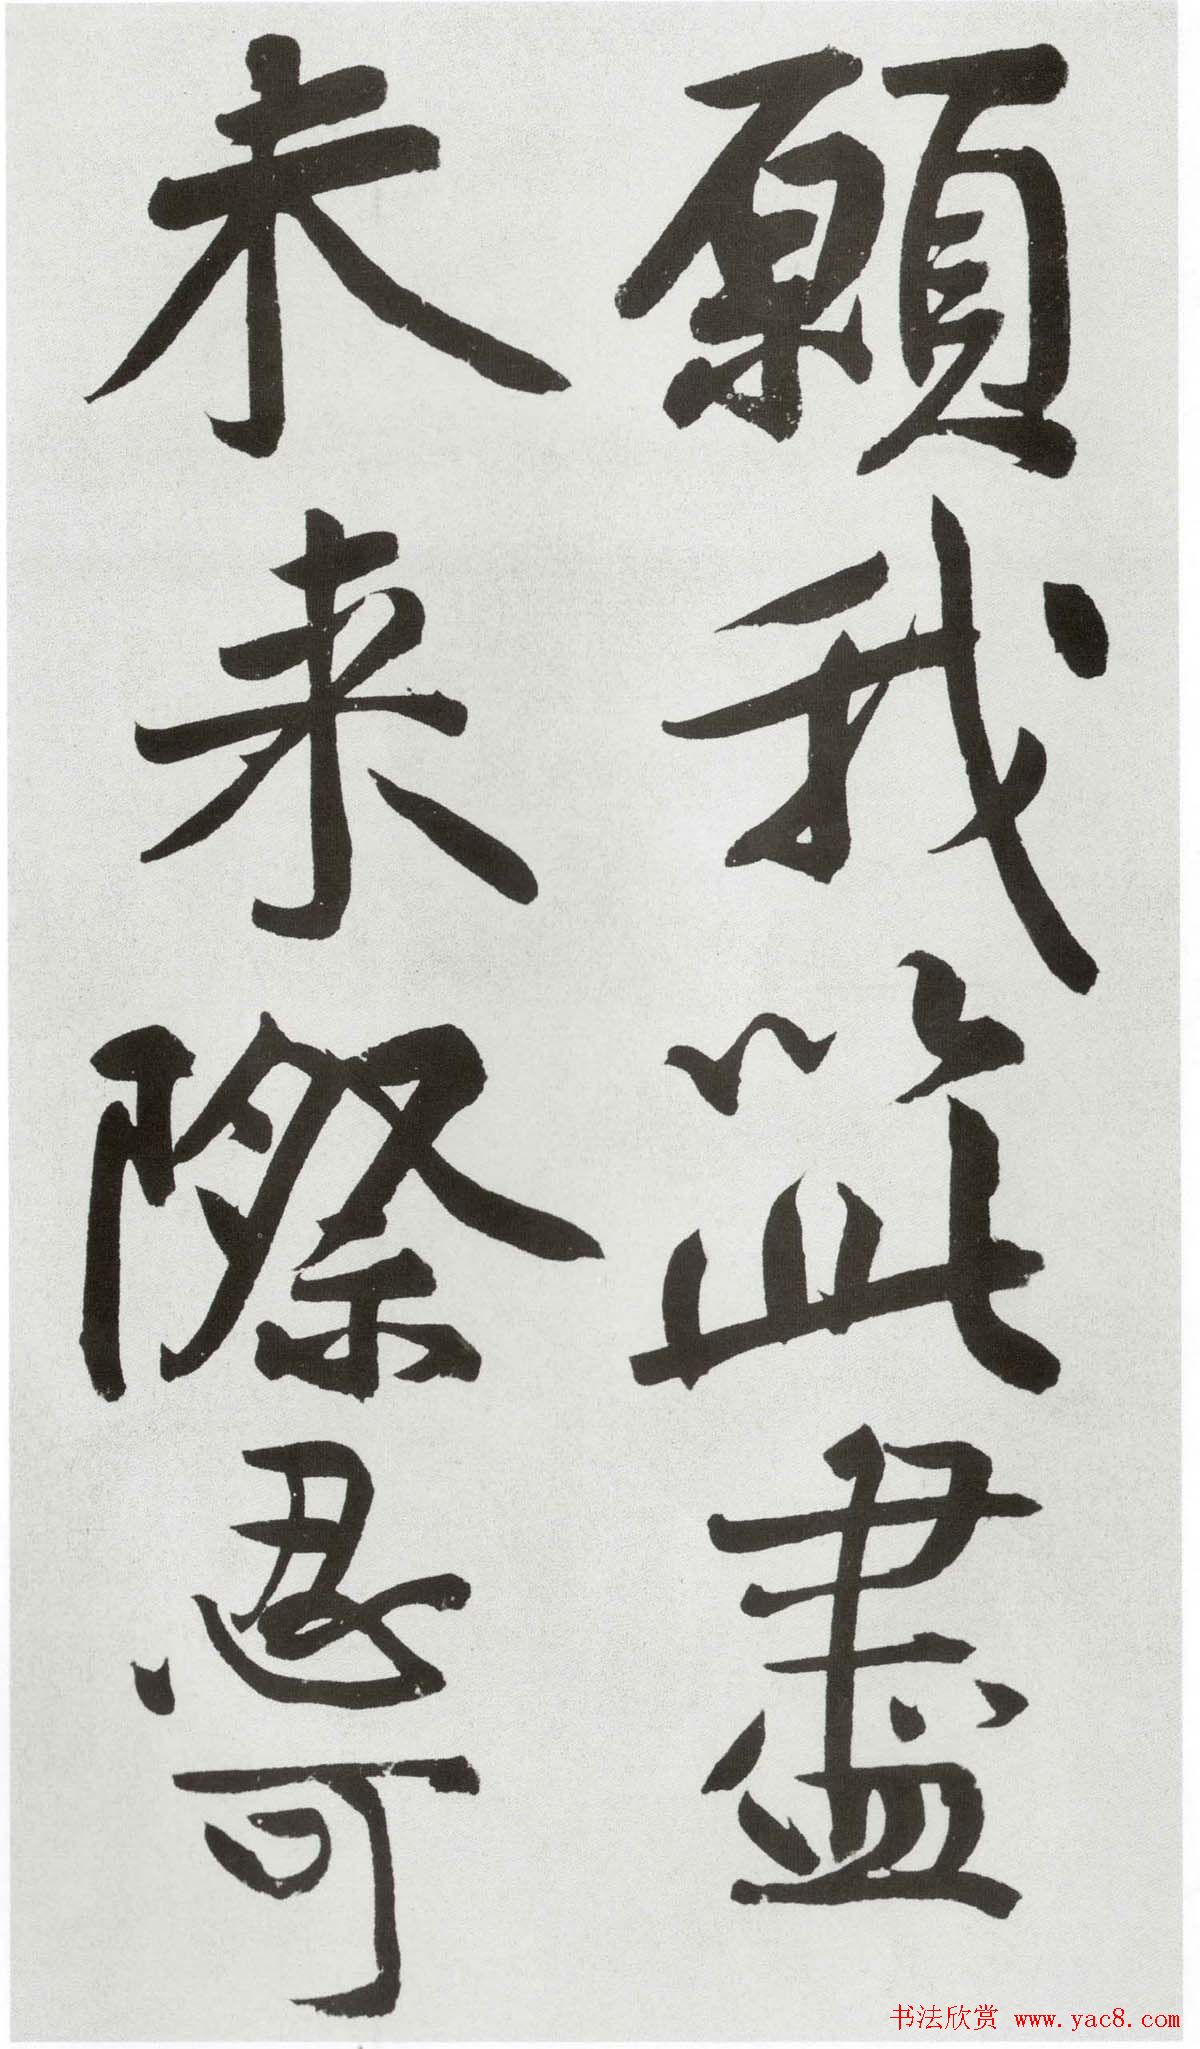 願我以此盡
未来際忍可
书法欣赏 www.yac8.com